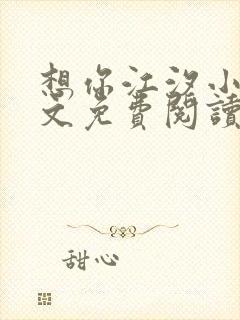 想你江汐小
文免費閱讀
甜心